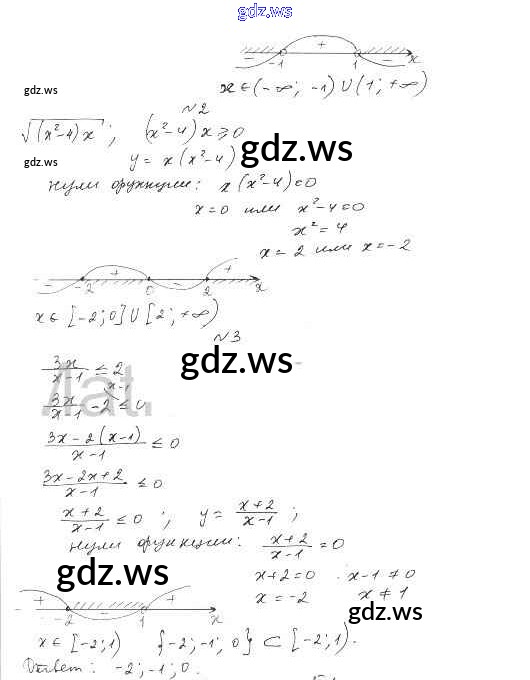 gdz.ws
+
- -1 1 - x
x ∈ (-∞; -1) ∪ (1; +∞)
gdz.ws
gdz.ws
№2
√(x²-4)x ; (x²-4)x ≥ 0
y = x(x²-4)
gdz.ws
gdz.ws
нули функции: x(x²-4)=0
x=0 или x²-4=0
x²=4
x=2 или x=-2
- -2 + 0 - 2 + x
x ∈ [-2; 0] ∪ [2; +∞)
№3
gdz.ws
3x/(x-1) ≤ 2
Лat.
3x/(x-1) - 2 ≤ 0
(3x-2(x-1))/(x-1) ≤ 0
(3x-2x+2)/(x-1) ≤ 0
(x+2)/(x-1) ≤ 0 ; y = (x+2)/(x-1) ;
нули функции: (x+2)/(x-1) = 0
gdz.ws
x+2=0 x-1≠0
gdz.ws
x=-2 x≠1
+ -2 - 1 + x
gdz.ws
x ∈ [-2; 1) {-2; -1; 0} ⊂ [-2; 1).
Ответ: -2; -1; 0.